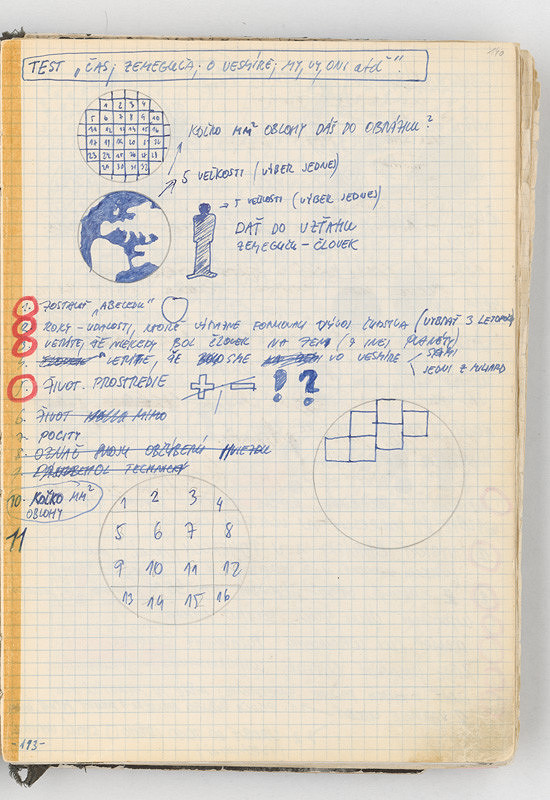 110
TEST „ČAS, ZEMEGUĽA, O VESMÍRE, MY, VY, ONI atď“.
1 2 3 4
5 6 7 8 9 10
11 12 13 14 15 16
17 18 19 20 21 22
23 24 25 26 27 28
29 30 31 32
KOĽKO MM² OBLOHY DÁŠ DO OBRÁZKU?
5 VEĽKOSTI (VÝBER JEDNEJ)
5 VEĽKOSTI (VÝBER JEDNEJ)
DAŤ DO VZŤAHU
ZEMEGUĽU – ČLOVEK
1. ZOSTAVIŤ „ABECEDU“
2. ROKY - UDALOSTI, KTORÉ VÝRAZNE FORMOVALI VÝVOJ ĽUDSTVA (VYBRAŤ 3 LETOPOČTY)
3. VERÍTE, ŽE NIEKEDY BOL ČLOVEK NA ZEMI (Z INEJ PLANÉTY)
4. VERÍTE, ŽE SME VO VESMÍRE < SAMI
JEDNI Z MILIARD
5. ŽIVOT. PROSTREDIE + − ! ?
6. ŽIVOT MIMO
7. POCITY
8. OZNAČ SVOJU OBĽÚBENÚ HVIEZDU
9. TECHNICKÝ
10. KOĽKO MM²
OBLOHY
11
1 2 3 4
5 6 7 8
9 10 11 12
13 14 15 16
-193-